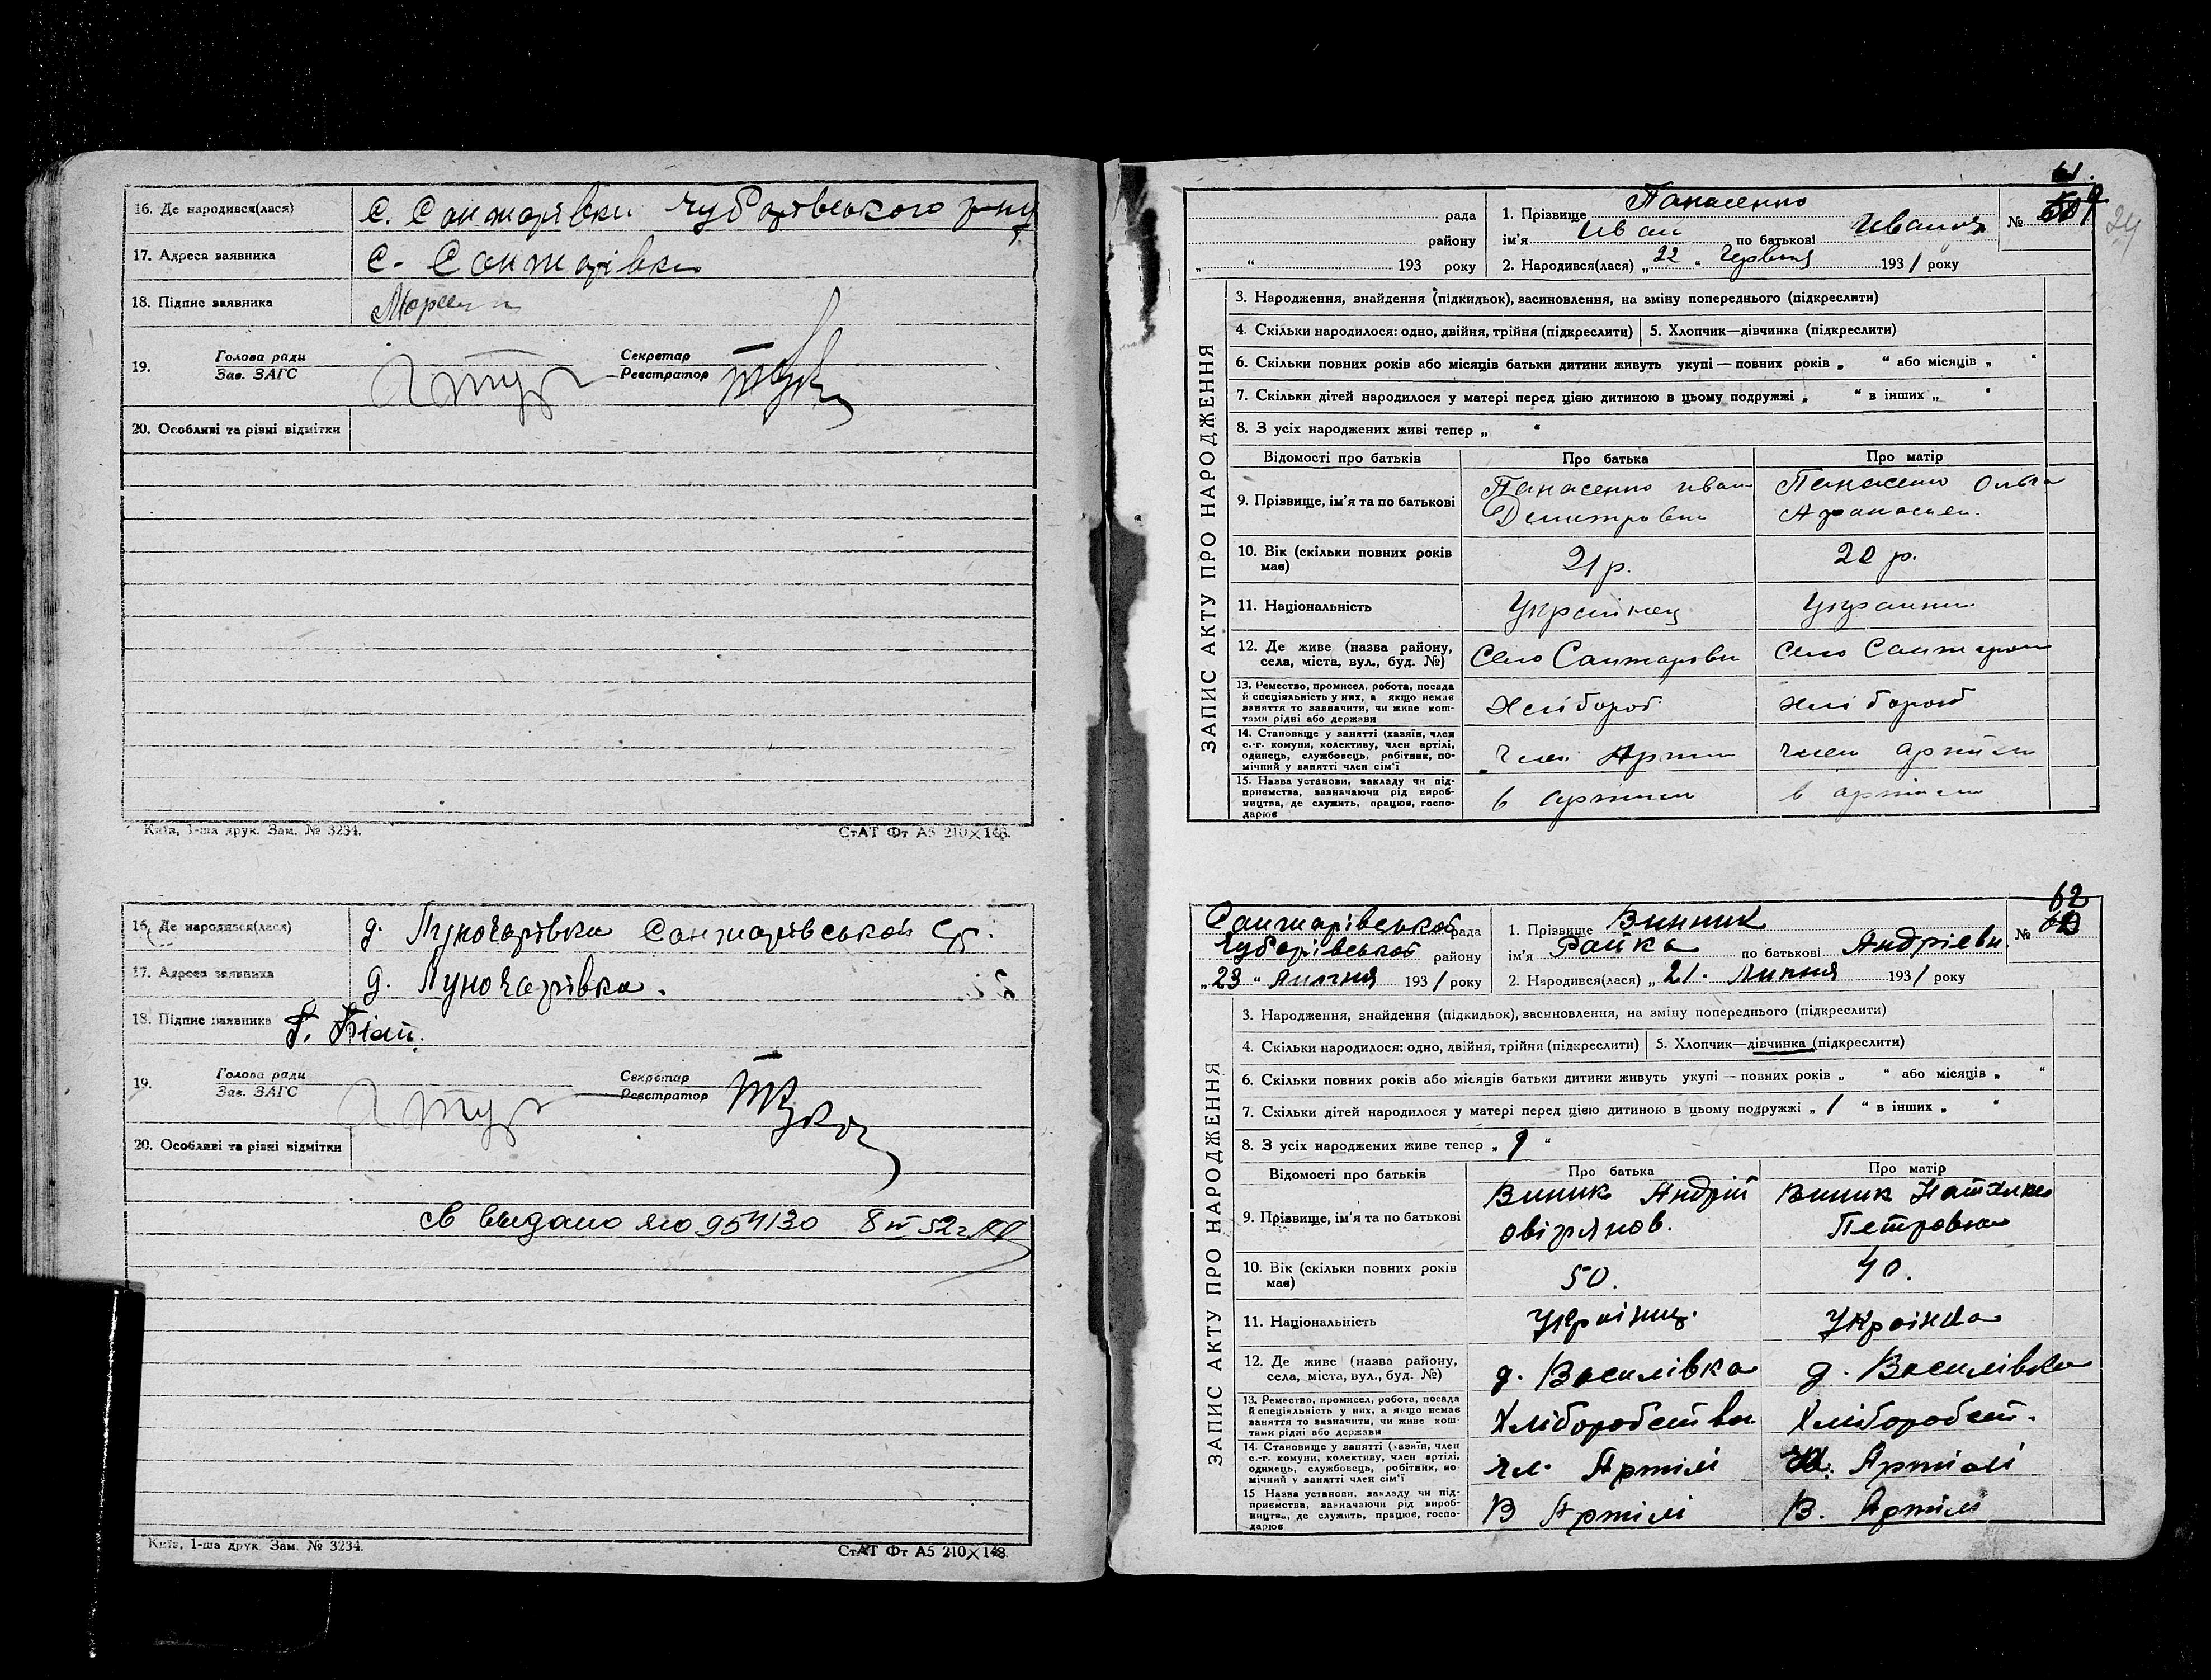 16. Де народився(лася) с. Санжарівки Чубарівського р-ну
17. Адреса заявника с. Санжарівки
18. Підпис заявника
19. Голова ради Секретар
Зав. ЗАГС Реєстратор
20. Особливі та різні відмітки
Київ, 1-ша друк. Зам. № 3234. СтАТ Фт А5 210×148.
16. Де народився(лася) д. Луночарівка Санжарівськой ср.
17. Адреса заявника д. Луночарівка.
18. Підпис заявника
19. Голова ради Секретар
Зав. ЗАГС Реєстратор
20. Особливі та різні відмітки
св выдано яю 954130 8 IV 52 г
Київ, 1-ша друк. Зам. № 3234. СтАТ Фт А5 210×148.
61.
24
ЗАПИС АКТУ ПРО НАРОДЖЕННЯ
рада 1. Прізвище Панасенко №
району ім'я Иван по батькові Иванов
„ “ 193 року 2. Народився(лася) „22“ Червня 1931 року
3. Народження, знайдення (підкидьок), засиновлення, на зміну попереднього (підкреслити)
4. Скільки народилося: одно, двійня, трійня (підкреслити) 5. Хлопчик—дівчинка (підкреслити)
6. Скільки повних років або місяців батьки дитини живуть укупі — повних років „ “ або місяців „ “
7. Скільки дітей народилося у матері перед цією дитиною в цьому подружжі „ “ в інших „ “
8. З усіх народжених живі тепер „ “
Відомості про батьків Про батька Про матір
9. Прізвище, ім'я та по батькові Панасенко Иван Панасенко Ольга
Дмитрович Афанасиев.
10. Вік (скільки повних років має) 21 р. 20 р.
11. Національність Украінец Украинка
12. Де живе (назва району, Село Санжаровки Село Санжаровки
села, міста, вул., буд. №)
13. Ремество, промисел, робота, посада
й спеціяльність у них, а якщо немає Хлібороб хлібороб
заняття то зазначити, чи живе кош-
тами рідні або держави
14. Становище у занятті (хазяїн, член
с.-г. комуни, колективу, член артілі, член Артили член артили
одинець, службовець, робітник, по-
мічний у занятті член сім'ї
15. Назва установи, закладу чи під-
приємства, зазначаючи рід вироб- в артили в артили
ництва, де служить, працює, госпо-
дарює
62
ЗАПИС АКТУ ПРО НАРОДЖЕННЯ
Санжарівськой рада 1. Прізвище Винник №
Чубарівськой району ім'я Райка по батькові Андріевн.
„23“ Липня 1931 року 2. Народився(лася) „21. Липня 1931 року
3. Народження, знайдення (підкидьок), засиновлення, на зміну попереднього (підкреслити)
4. Скільки народилося: одно, двійня, трійня (підкреслити) 5. Хлопчик—дівчинка (підкреслити)
6. Скільки повних років або місяців батьки дитини живуть укупі — повних років „ “ або місяців „ “
7. Скільки дітей народилося у матері перед цією дитиною в цьому подружжі „1“ в інших „ “
8. З усіх народжених живе тепер „1“
Відомості про батьків Про батька Про матір
9. Прізвище, ім'я та по батькові Виник Андрій Виник
овірянов. Петровна
10. Вік (скільки повних років має) 50. 40.
11. Національність Украінец. Украінка
12. Де живе (назва району, д. Василівка д. Василівка
села, міста, вул., буд. №)
13. Ремество, промисел, робота, посада
й спеціяльність у них, а якщо немає Хліборобства Хліборобст.
заняття то зазначити, чи живе кош-
тами рідні або держави
14. Становище у занятті (хазяїн, член
с.-г. комуни, колективу, член артілі, чл. Артілі чл. Артілі
одинець, службовець, робітник, по-
мічний у занятті член сім'ї
15 Назва установи, закладу чи під-
приємства, зазначаючи рід вироб- В Артілі В. Артілі
ництва, де служить, працює, госпо-
дарює